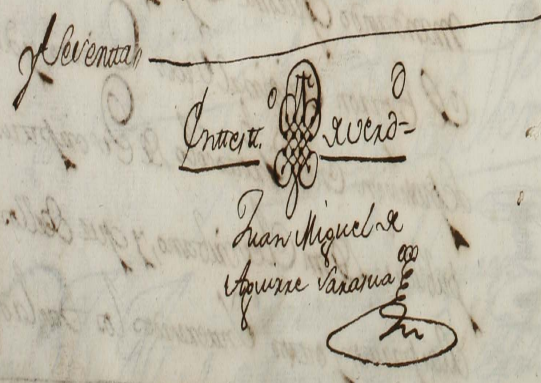 y Seventta
En testi.º de verdᵈ
Juan Miguel de
Aguirre Sarasua